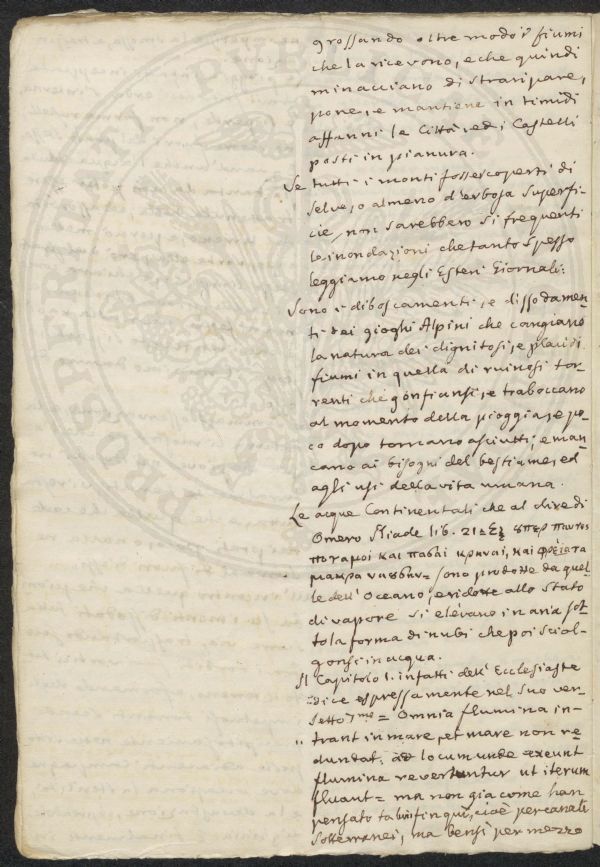 grossando oltre modo i fiumi
che la ricevono, e che quindi
minacciano di straripare,
pone, e mantiene in timidi
affanni le Città, ed i Castelli
posti in pianura.
Se tutti i monti fosser coperti di
selve, o almeno d'erbosa superfi-
cie, non sarebbero sì frequenti
le inondazioni che tanto spesso
leggiamo negli Esteri Giornali:
Sono i diboscamenti, e dissodamen-
ti dei gioghi Alpini che cangiano
la natura dei dignitosi, e placidi
fiumi in quella di ruinosi tor-
renti che gonfiansi, e traboccano
al momento della pioggia, e po-
co dopo tornano asciutti, e man-
cano ai bisogni del bestiame, ed
agli usi della vita umana.
Le acque Continentali che al dire di
Omero Iliade lib. 21 = Εξ
ποταμοι και πασαι κρηναι, και φρειατα
μακρα = sono prodotte da quel-
le dell'Oceano, e ridotte allo stato
di vapore si elevano in aria sot-
to la forma di nubi che poi sciol-
gonsi in acqua.
Il Capitolo I. infatti dell'Ecclesiaste
dice espressamente nel suo ver-
setto 7mo = Omnia flumina in-
" trant in mare, et mare non re-
dundat, ad locum unde exeunt
flumina revertuntur ut iterum
fluant = ma non già come han
pensato fin qui, cioè per canali
sotterranei, ma bensì per mezzo
PROSPERI PUBLIC